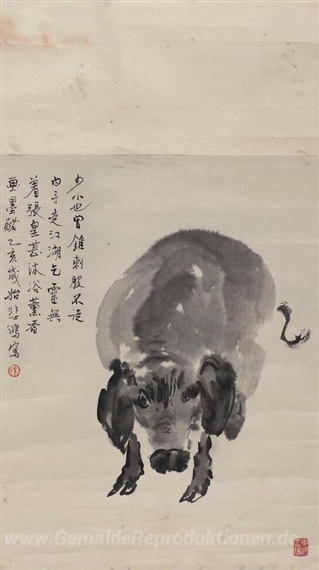 少小也曾錐刺股不徒
白手走江湖乞靈無
着張皇甚沐浴薰香
畫墨豬乙亥歲始悲鴻寫
www.GemaldeReproduktionen.de